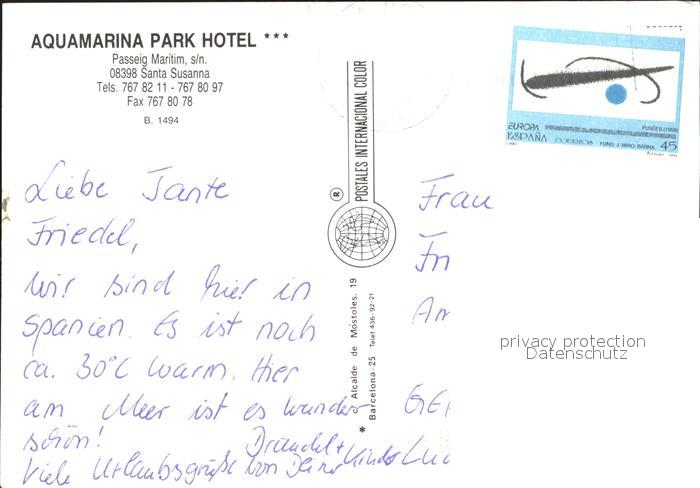 AQUAMARINA PARK HOTEL ***
Passeig Marítim, s/n.
08398 Santa Susanna
Tels. 767 82 11 - 767 80 97
Fax 767 80 78
B. 1494
Liebe Tante
Friedel,
Wir sind hier in
Spanien. Es ist noch
ca. 30°C warm. Hier
am Meer ist es wunder
schön!
Viele Urlaubsgrüße von
POSTALES INTERNACIONAL COLOR
®
c/ Alcalde de Móstoles, 19
* Barcelona-25 Telef. 436-92-21
FUSÉES
EUROPA
ESPAÑA CORREOS FUND. J. MIRO. BARNA. 45
Frau
privacy protection
Datenschutz